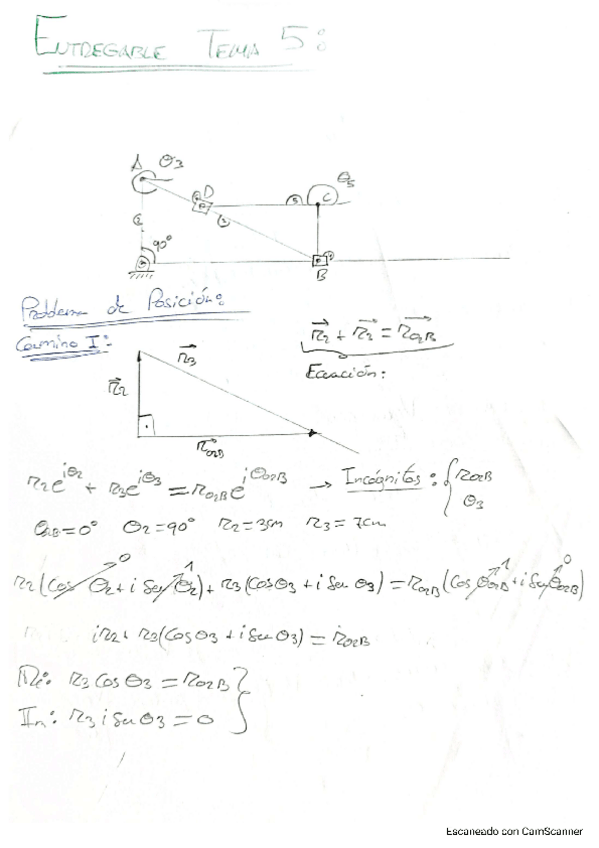 ENTREGABLE TEMA 5:
A θ3
D
θ5
C
90°
B
Problema de Posición:
Camino I:
r2 + r3 = rO2B
r3
Ecuación:
r2
rO2B
r2e^iθ2 + r3e^iθ3 = rO2Be^iθO2B → Incógnitas: { rO2B
θ3
θO2B=0° θ2=90° r2=3cm r3=7cm
r2(Cosθ2+i Senθ2)+r3(Cosθ3+i Senθ3)=rO2B(CosθO2B+i SenθO2B)
0 1 1 0
ir2+r3(Cosθ3+i Senθ3)=rO2B
Re: r3 Cosθ3=rO2B
Im: r3 i Senθ3=0
Escaneado con CamScanner